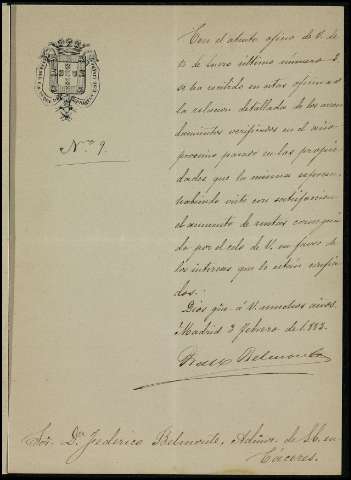 Nº 9.
Con el atento oficio de V. de
de Enero último número 3
se ha recibido en estas oficinas
la relacion detallada de los arren
damientos verificados en el año
proximo pasado en las propie
dades que la misma expresa,
habiendo visto con satisfaccion
el aumento de rentas consegui
do por el celo de V. en favor de
los intereses que le estan confia
dos.
Dios güe. á V. muchos años.
Madrid 3 Febrero de 1.882.
Belmonte
Sor. Dn. Federico Belmonte, Admor. de S.E. en
Cáceres.